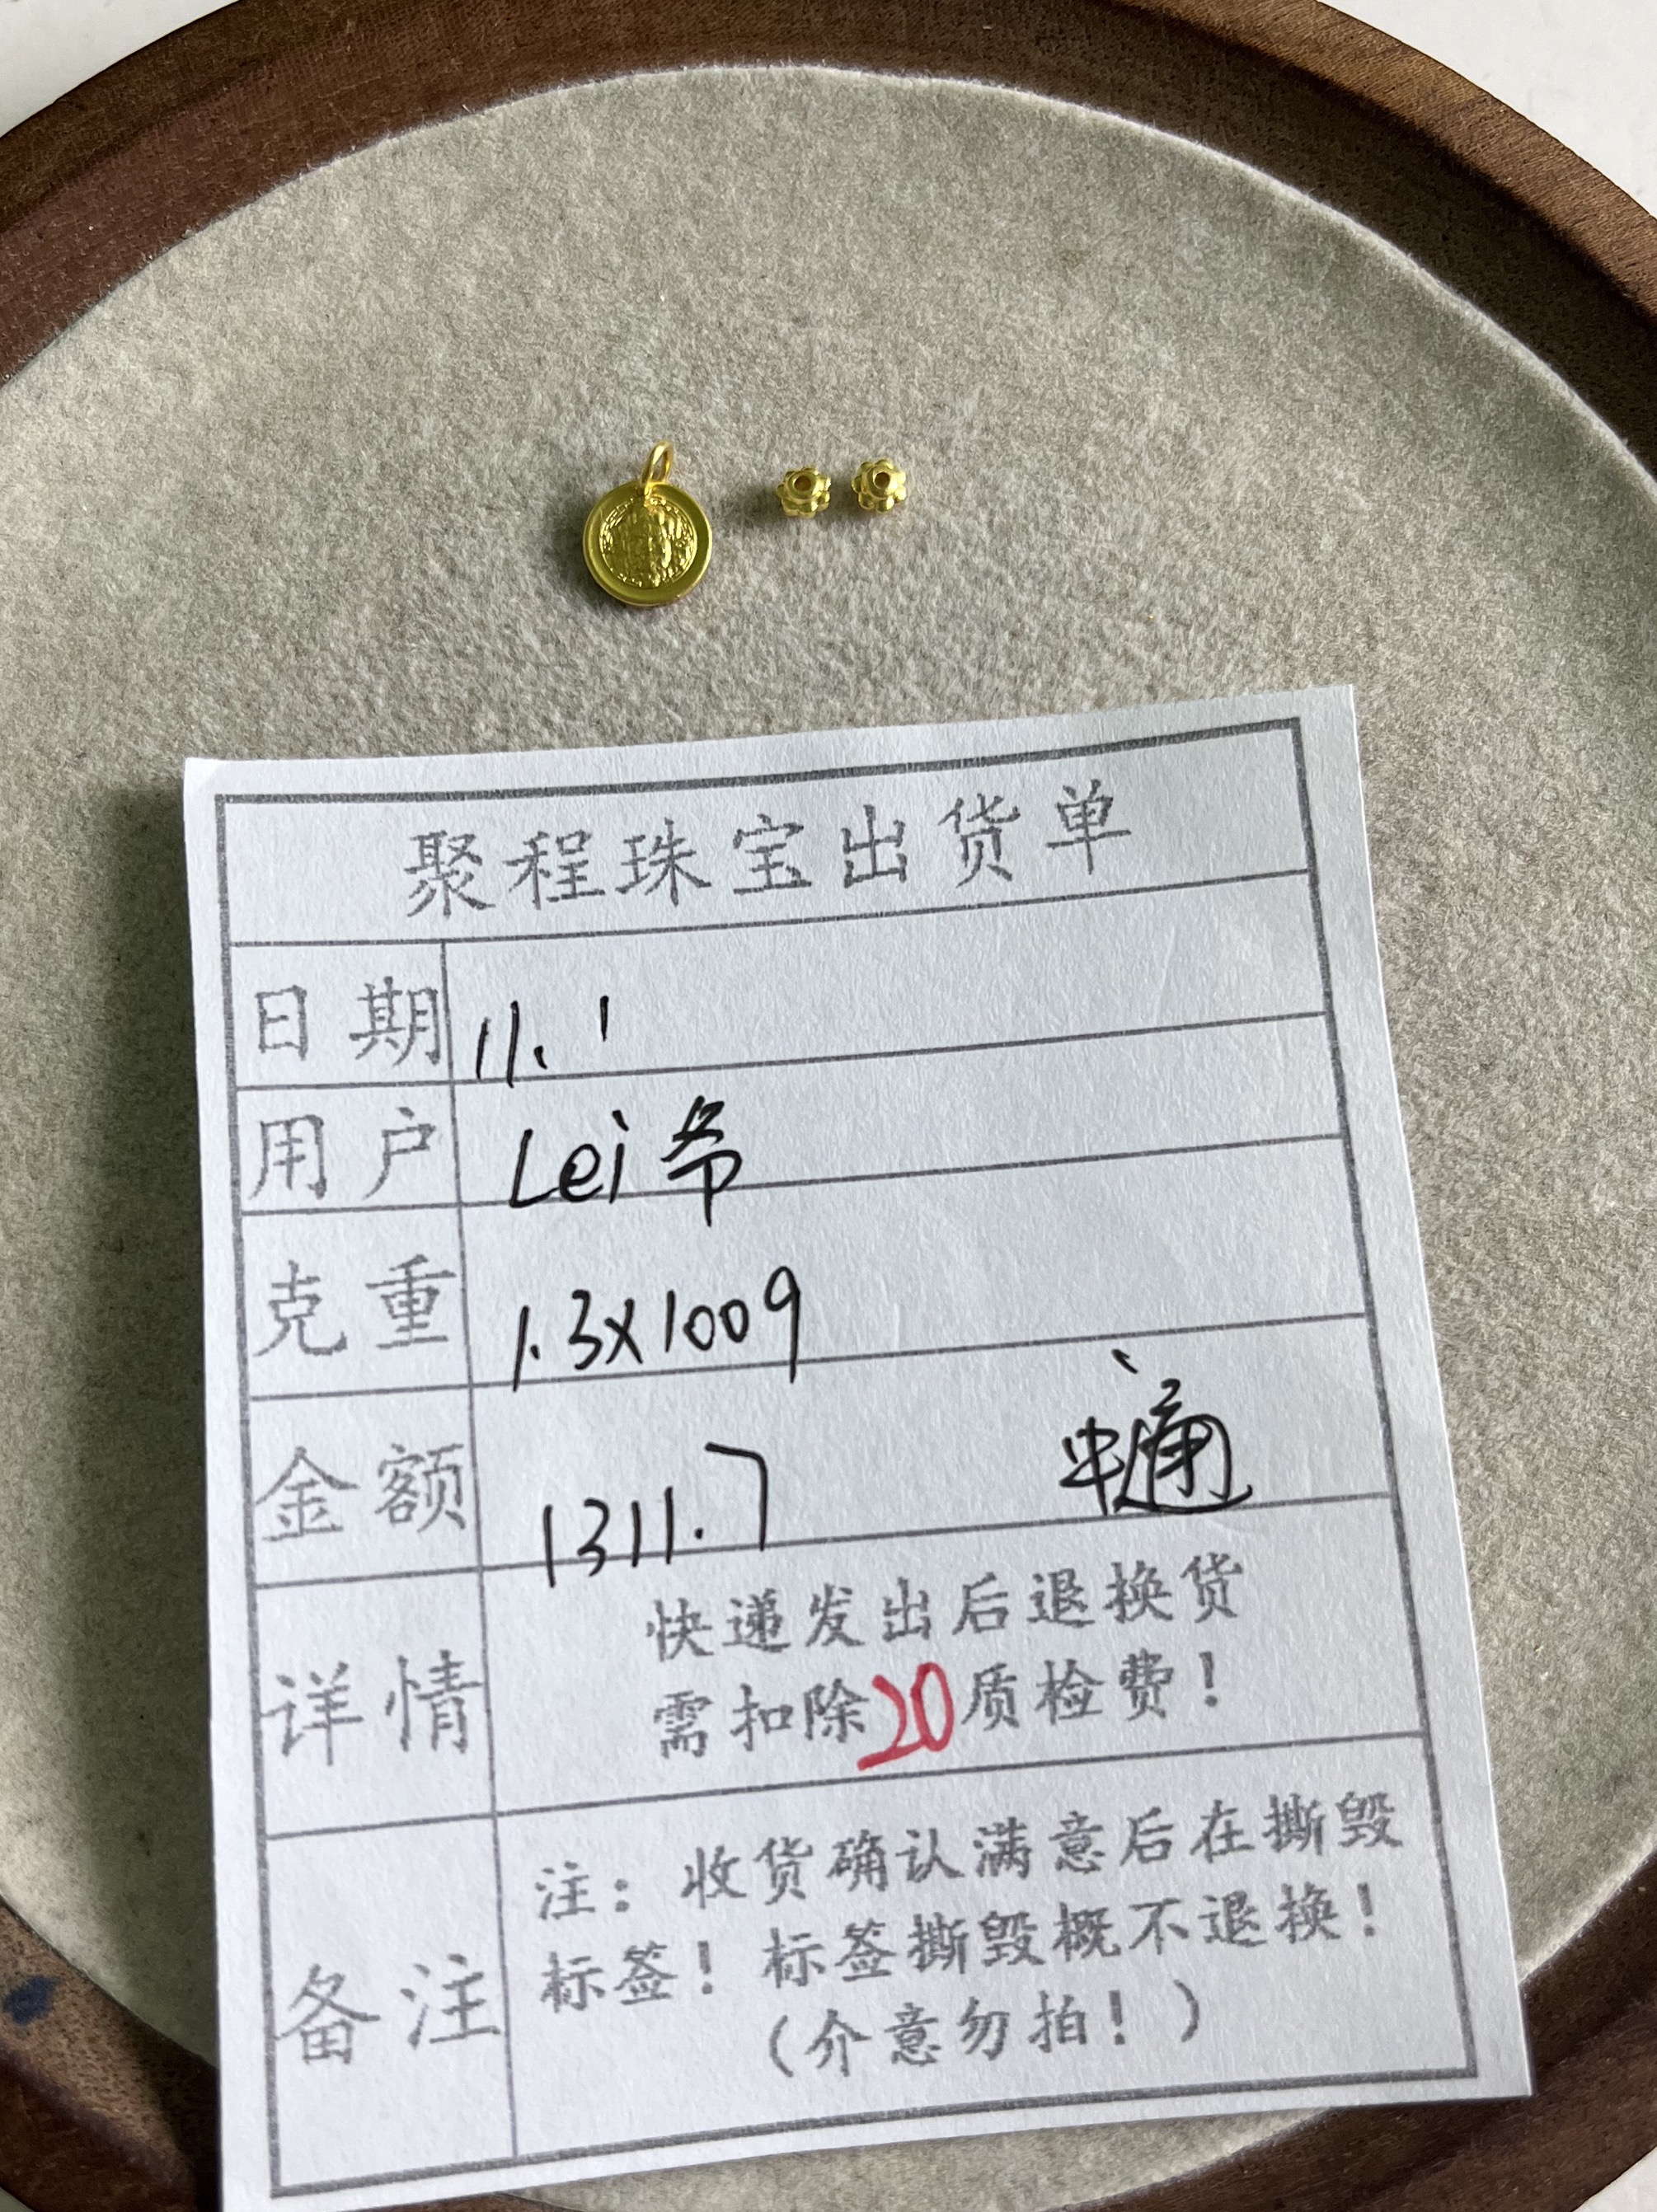 聚程珠宝出货单
日期 11.1
用户 Lei希
克重 1.3×1009
金额 1311.7 中通
详情 快递发出后退换货
需扣除20质检费！
备注 注：收货确认满意后在撕毁
标签！标签撕毁概不退换！
（介意勿拍！）